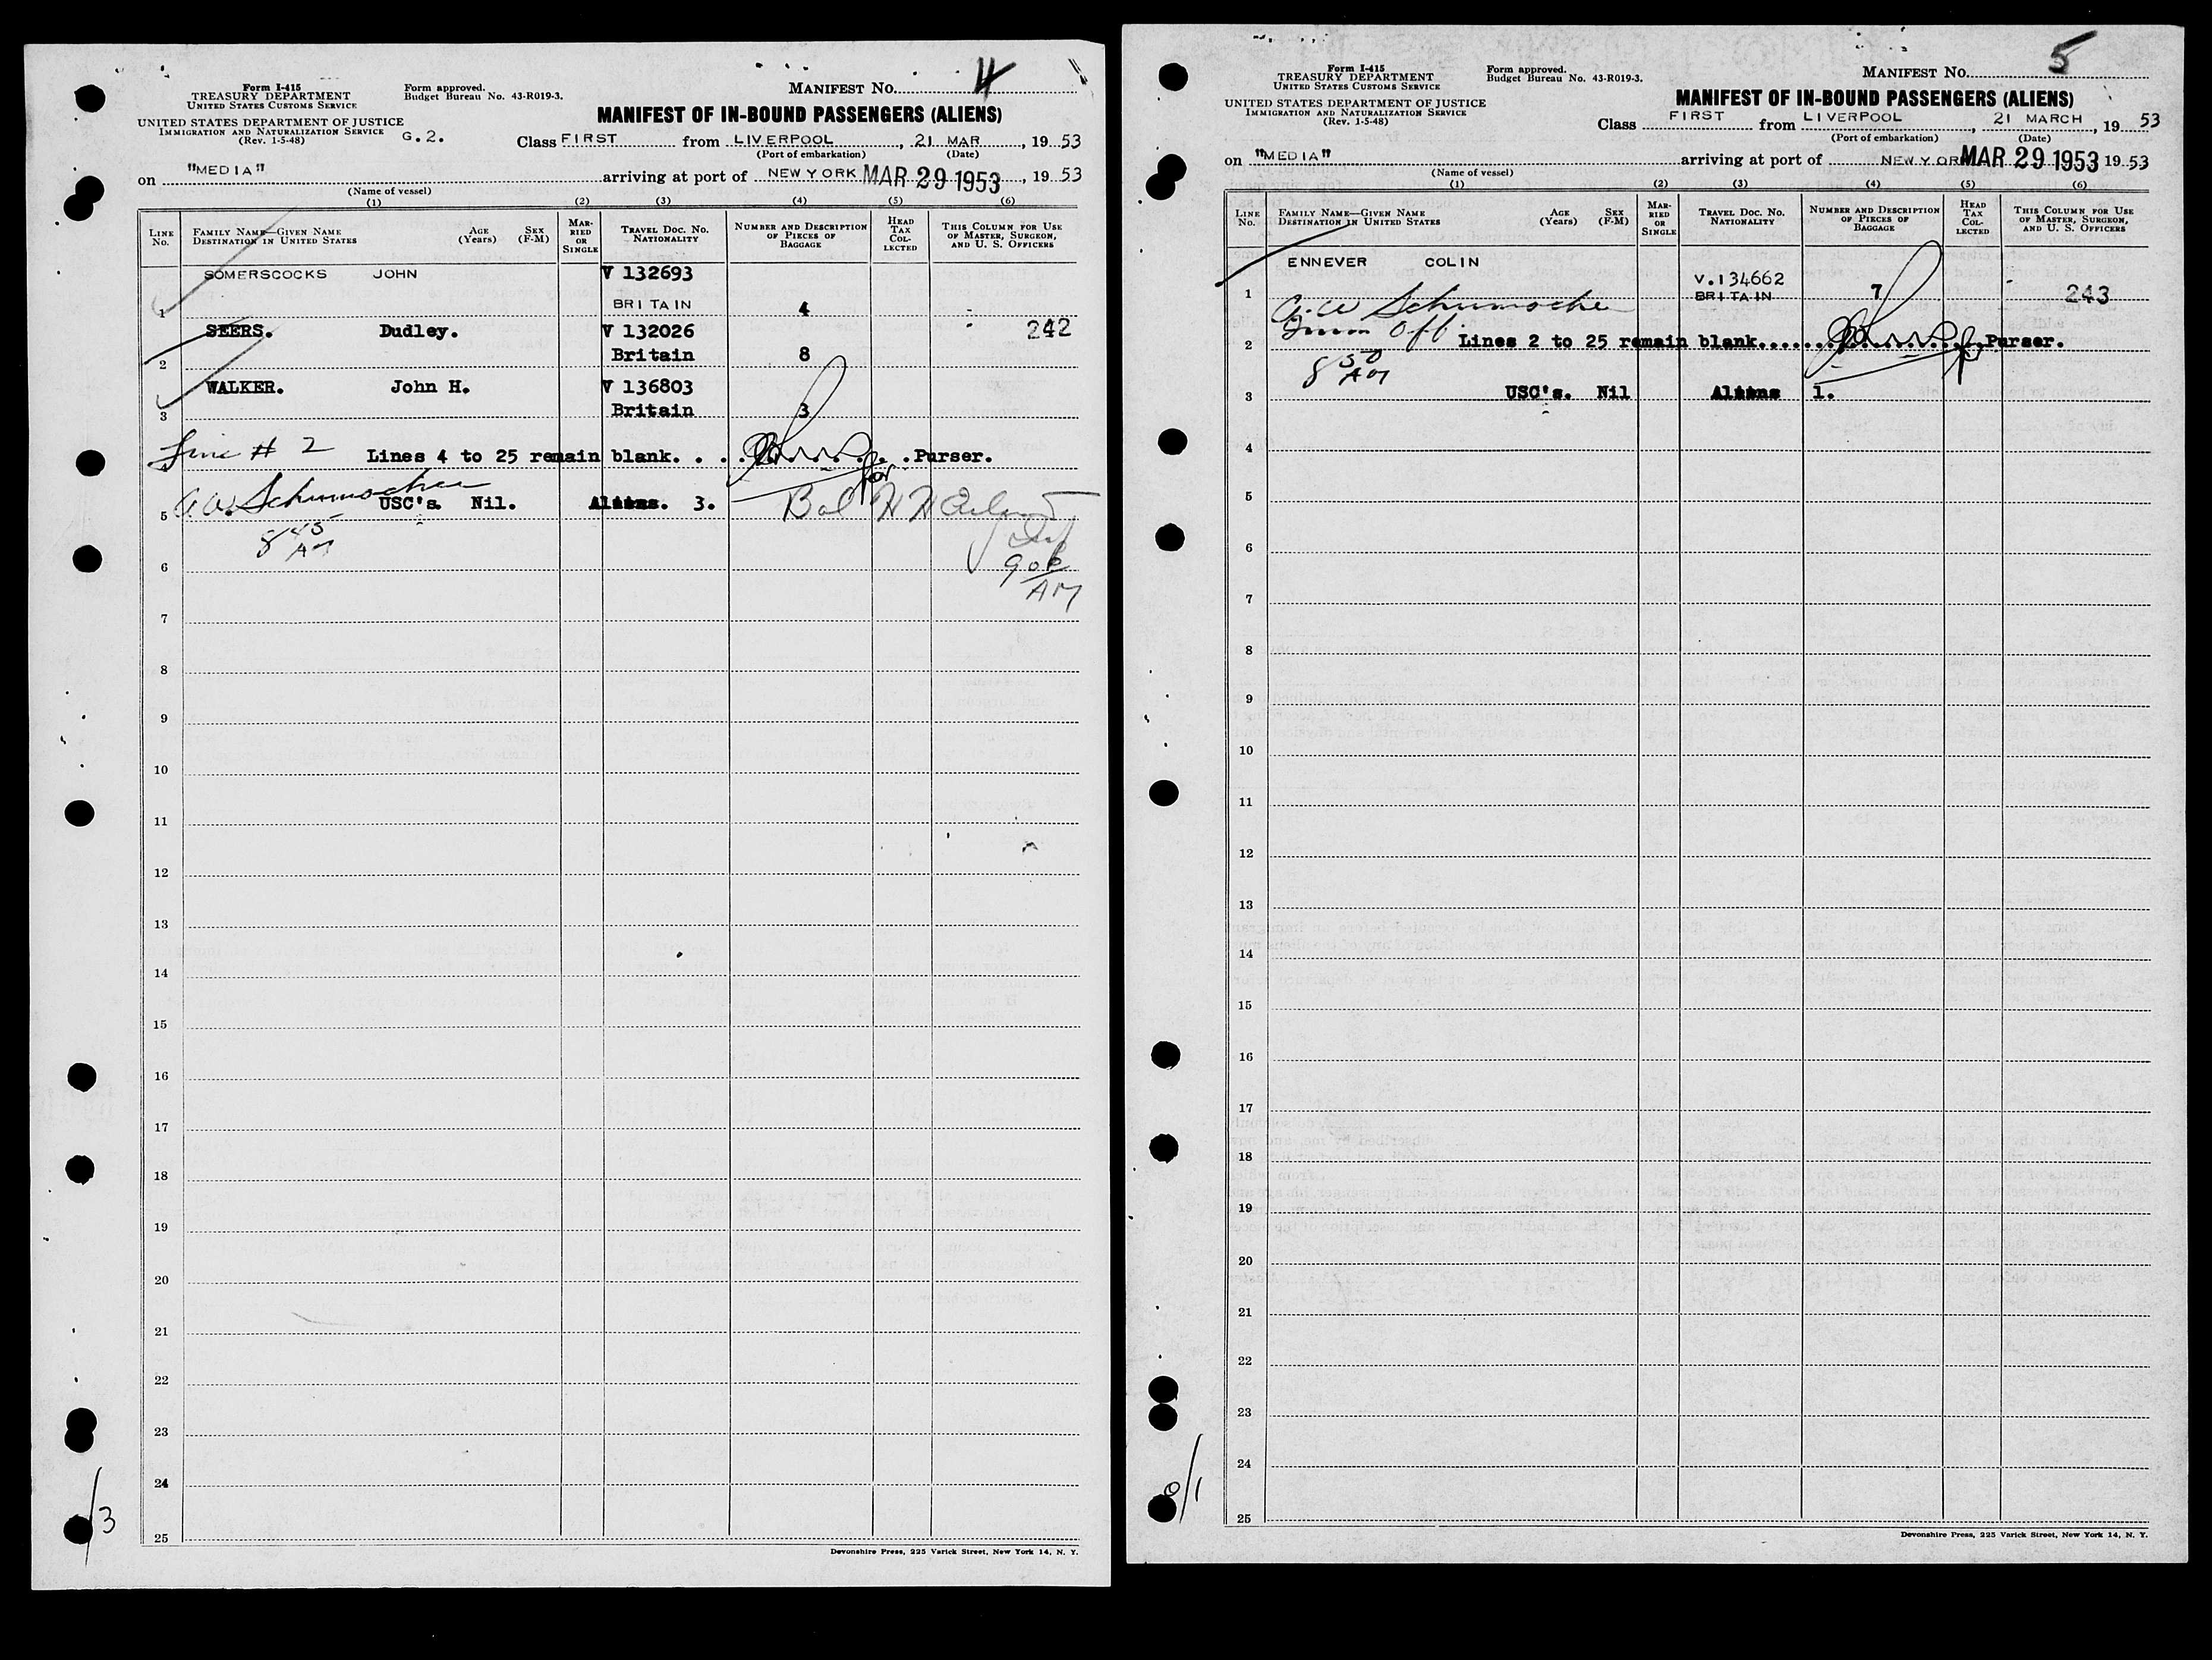 Form I-415
TREASURY DEPARTMENT
UNITED STATES CUSTOMS SERVICE
Form approved.
Budget Bureau No. 43-R019-3.
MANIFEST No. 4
UNITED STATES DEPARTMENT OF JUSTICE
IMMIGRATION AND NATURALIZATION SERVICE
(Rev. 1-5-48)
G.2.
MANIFEST OF IN-BOUND PASSENGERS (ALIENS)
Class FIRST from LIVERPOOL, 21 MAR, 19 53
(Port of embarkation) (Date)
on "MEDIA" arriving at port of NEW YORK MAR 29 1953, 19 53
(Name of vessel)
(1) (2) (3) (4) (5) (6)
LINE No. FAMILY NAME—GIVEN NAME DESTINATION IN UNITED STATES AGE (Years) SEX (F-M) MARRIED OR SINGLE TRAVEL DOC. NO. NATIONALITY NUMBER AND DESCRIPTION OF PIECES OF BAGGAGE HEAD TAX COLLECTED THIS COLUMN FOR USE OF MASTER, SURGEON, AND U. S. OFFICERS
SOMERSCOCKS JOHN V 132693
1 BRITAIN 4
SEERS. Dudley. V 132026 242
2 Britain 8
WALKER. John H. V 136803
3 Britain 3
Line # 2 Lines 4 to 25 remain blank. . . . Purser.
for
A.W. Schumacher
5 USC's. Nil. Aliens. 3. Bal H H
8 45 AM
6 906 AM
7
8
9
10
11
12
13
14
15
16
17
18
19
20
21
22
23
24
25
/3
Devonshire Press, 225 Varick Street, New York 14, N. Y.
Form I-415
TREASURY DEPARTMENT
UNITED STATES CUSTOMS SERVICE
Form approved.
Budget Bureau No. 43-R019-3.
MANIFEST No. 5
UNITED STATES DEPARTMENT OF JUSTICE
IMMIGRATION AND NATURALIZATION SERVICE
(Rev. 1-5-48)
MANIFEST OF IN-BOUND PASSENGERS (ALIENS)
Class FIRST from LIVERPOOL, 21 MARCH, 19 53
(Port of embarkation) (Date)
on "MEDIA" arriving at port of NEW YORK MAR 29 1953 19 53
(Name of vessel)
(1) (2) (3) (4) (5) (6)
LINE No. FAMILY NAME—GIVEN NAME DESTINATION IN UNITED STATES AGE (Years) SEX (F-M) MARRIED OR SINGLE TRAVEL DOC. NO. NATIONALITY NUMBER AND DESCRIPTION OF PIECES OF BAGGAGE HEAD TAX COLLECTED THIS COLUMN FOR USE OF MASTER, SURGEON, AND U. S. OFFICERS
ENNEVER COLIN V.134662
1 BRITAIN 7 243
A.W Schumacher
Imm Off.
2 Lines 2 to 25 remain blank.... Purser.
8 50 AM
3 USC's. Nil Aliens 1.
4
5
6
7
8
9
10
11
12
13
14
15
16
17
18
19
20
21
22
23
24
25
0/1
Devonshire Press, 225 Varick Street, New York 14, N. Y.